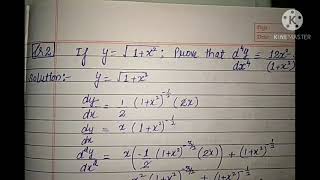 Q.2 If y = √1+x² ; Prove that d⁴y/dx⁴ = 12x²-/(1+x²)
Solution:- y = √1+x²
dy/dx = 1/2 (1+x²)^-1/2 (2x)
dy/dx = x (1+x²)^-1/2
d²y/dx² = x(-1/2 (1+x²)^-3/2 (2x)) + (1+x²)^-1/2
KINEMASTER